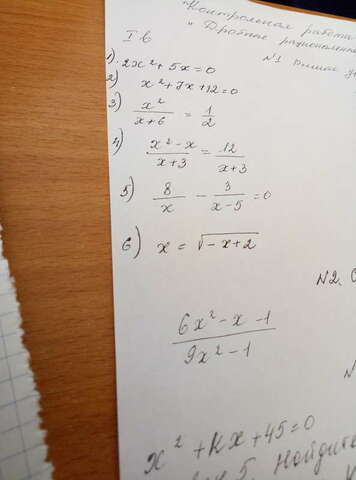 "Контрольная работа
" Дробные рационал
I в
N1 Решите
1) 2x² + 5x = 0
2) x² + 7x + 12 = 0
3) x²/(x+6) = 1/2
4) (x² - x)/(x+3) = 12/(x+3)
5) 8/x - 3/(x-5) = 0
6) x = √(-x+2)
N2.
(6x² - x - 1)/(9x² - 1)
x² + kx + 45 = 0
5. Найдите